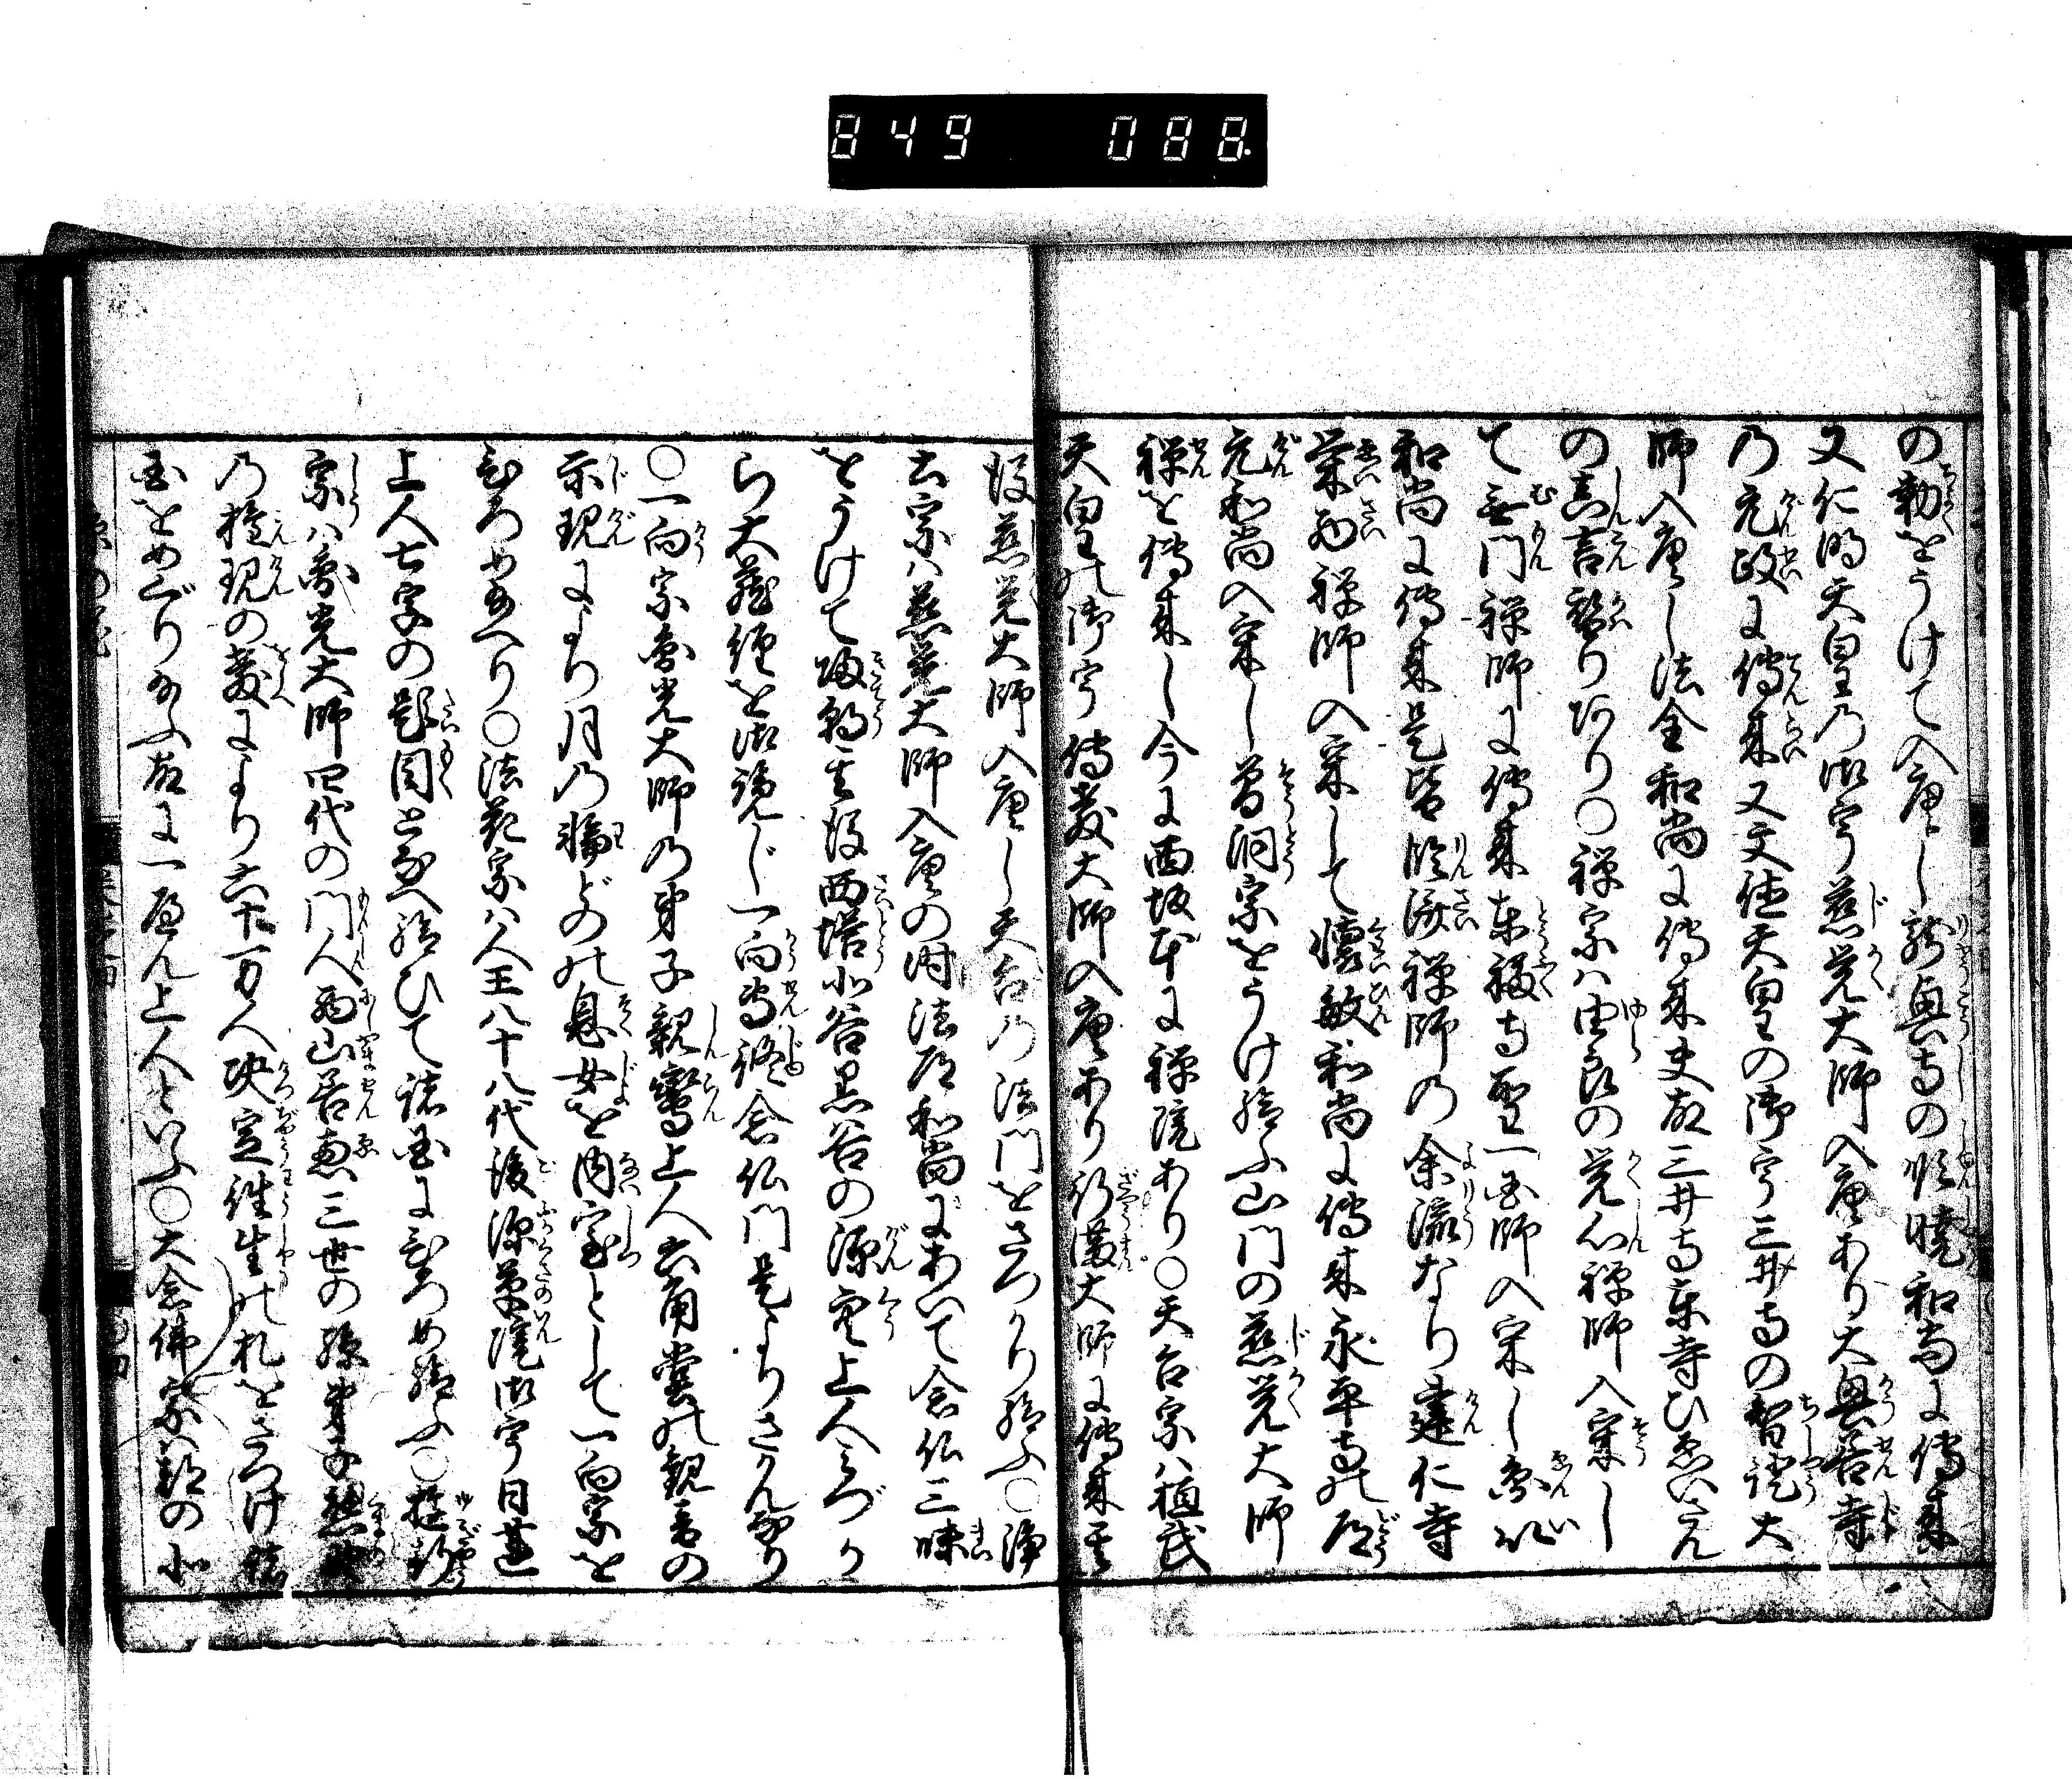 849 088
の勅をうけて入唐し龍興寺の順暁和尚に傳来
又仁明天皇乃御宇慈覚大師入唐あり大興善寺
乃元政に傳来又文徳天皇の御宇三井寺の智證大
師入唐し法全和尚に傳来史故三井寺東寺ひゑいさん
の真言替りあり〇禅宗ハ由良の覚心禅師入宋し
て無門禅師に傳来東福寺聖一国師入宋し
和尚に傳来是皆臨済禅師の余流なり建仁寺
栄西禅師入宋して懐敏和尚に傳来永平寺の道
元和尚入宋し曽洞宗をうけ給ふ山門の慈覚大師
禅を傳来し今に西坂本に禅院あり〇天台宗ハ桓武
天皇の御宇傳教大師入唐あり行満大師に傳来其
後慈覚大師入唐し天台乃法門をさつかり給ふ〇浄
土宗ハ慈覚大師入唐の時法道和尚にあいて念仏三昧
をうけて帰朝其後西塔北谷黒谷の源空上人みづか
ら大蔵経を御覧じ一向専修念仏門是よりさかんなり
〇一向宗ハ円光大師乃弟子親鸞上人六角堂の観音の
示現により月乃輪どのの息女を内室として一向宗を
ひろめ給へり〇法花宗ハ人王八十八代後深草院御宇日蓮
上人七字の題目となへ給ひて諸国にひろめ給ふ〇遊行
宗ハ円光大師四代の門人西山善恵三世の孫弟子熊野
乃権現の教により六十万人决定往生の札をさつけ諸
国をめぐり給ふ故に一遍上人といふ〇大念佛宗ハ都の北